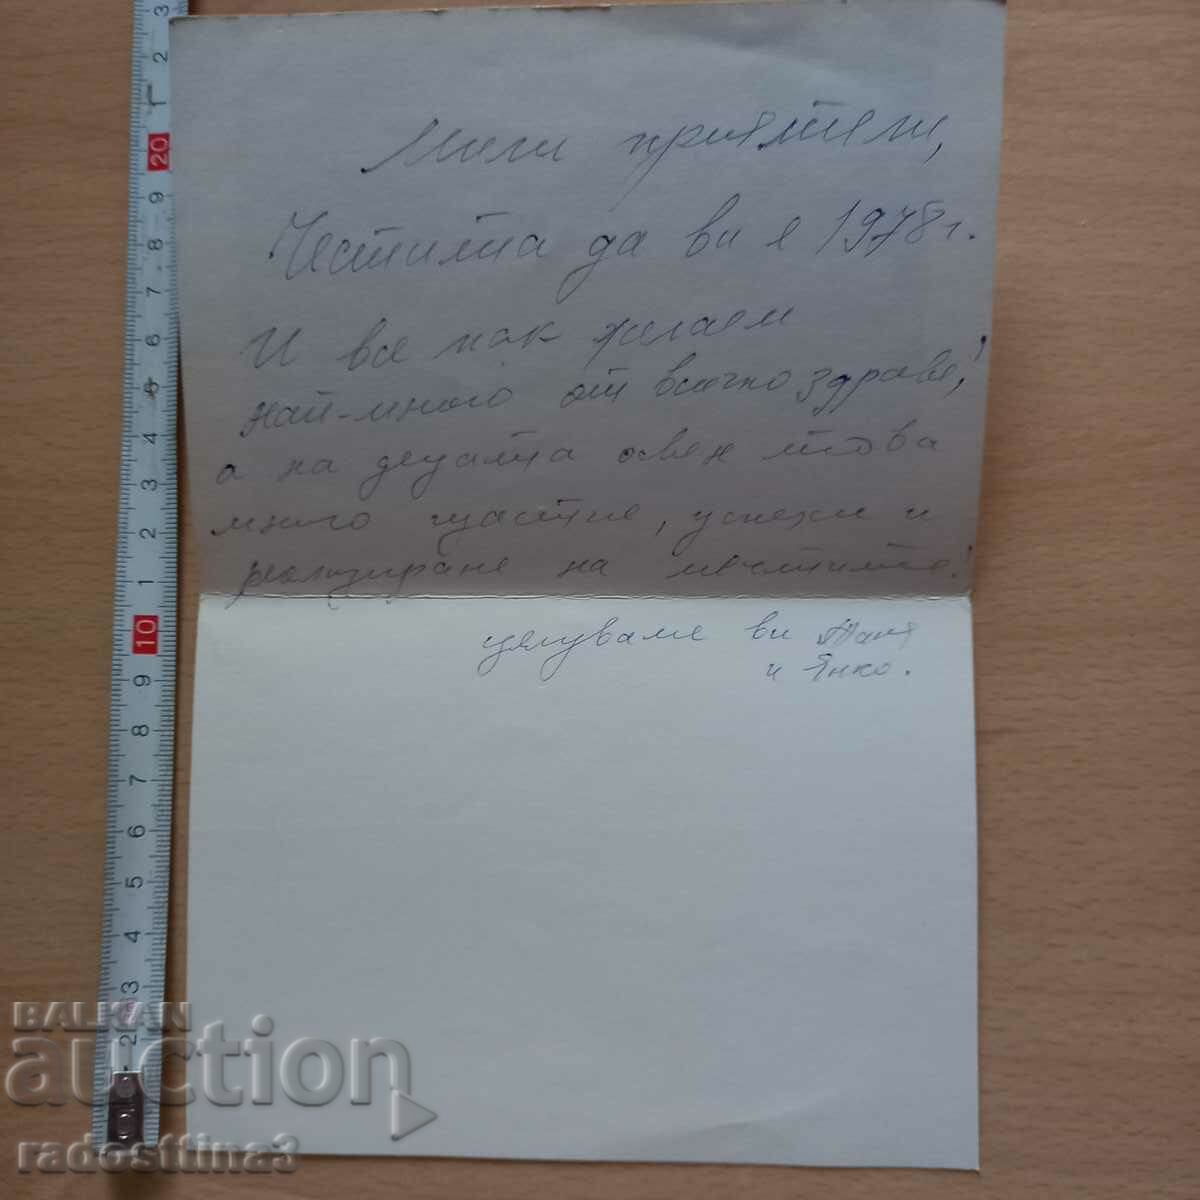 Мили приятели,
Честита да ви е 1978 г.
И все пак желаем
най-много от всичко здраве,
а на децата освен това
много щастие, успехи и
реализиране на мечтите!
целуваме ви Таня
и Янко.
BALKAN
auction
radosttina3
3
2
1
20
9
8
7
6
5
4
3
2
1
10
9
8
7
6
5
4
3
2